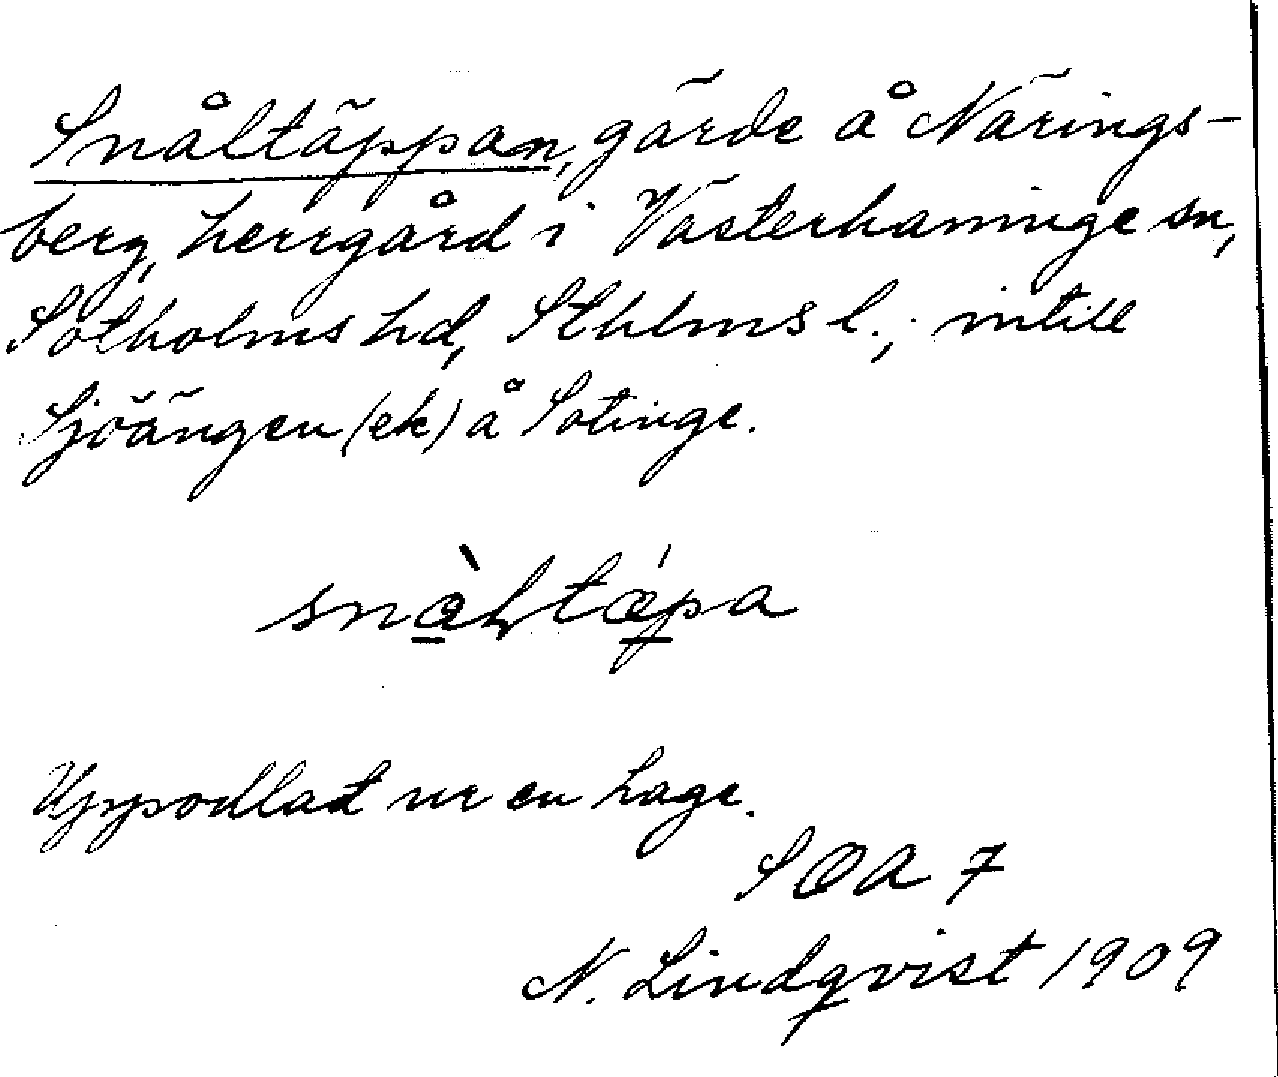 Snåltäppan, gärde å Närings-
berg, herrgård i Västerhaninge sn,
Sotholms hd, Sthlms l.; intill
Sjöängen (ek) å Sotinge.
Uppodlad ur en hage.
SOA 7
N. Lindqvist 1909